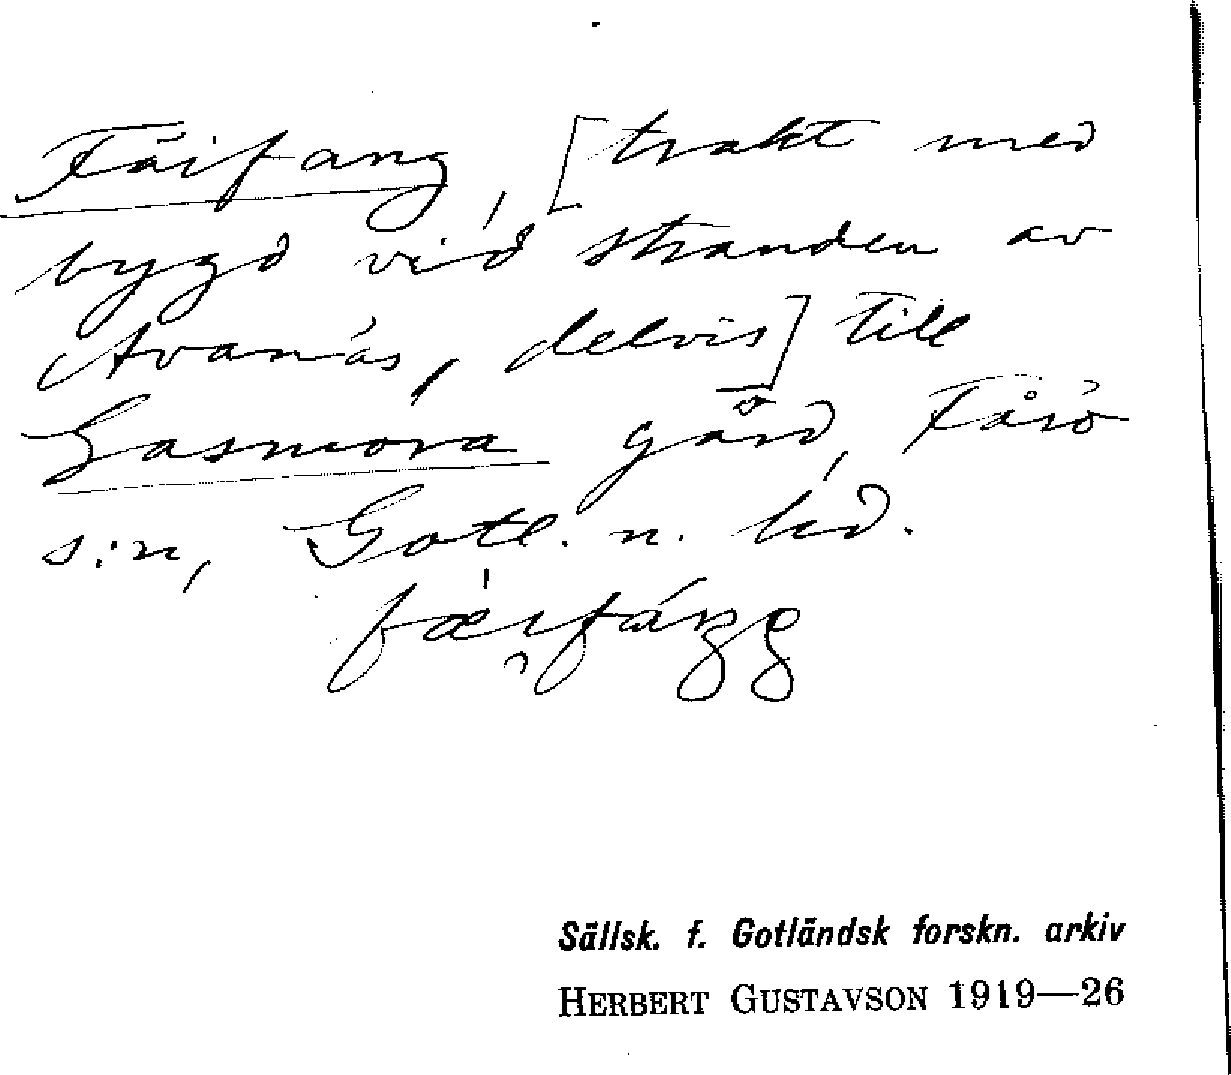 Fäifang, [trakt med
bygd vid stranden av
Avanäs, delvis] till
Gasmora gård, Fårö
s:n, Gotl. n. hd.
Sällsk. f. Gotländsk forskn. arkiv
HERBERT GUSTAVSON 1919—26